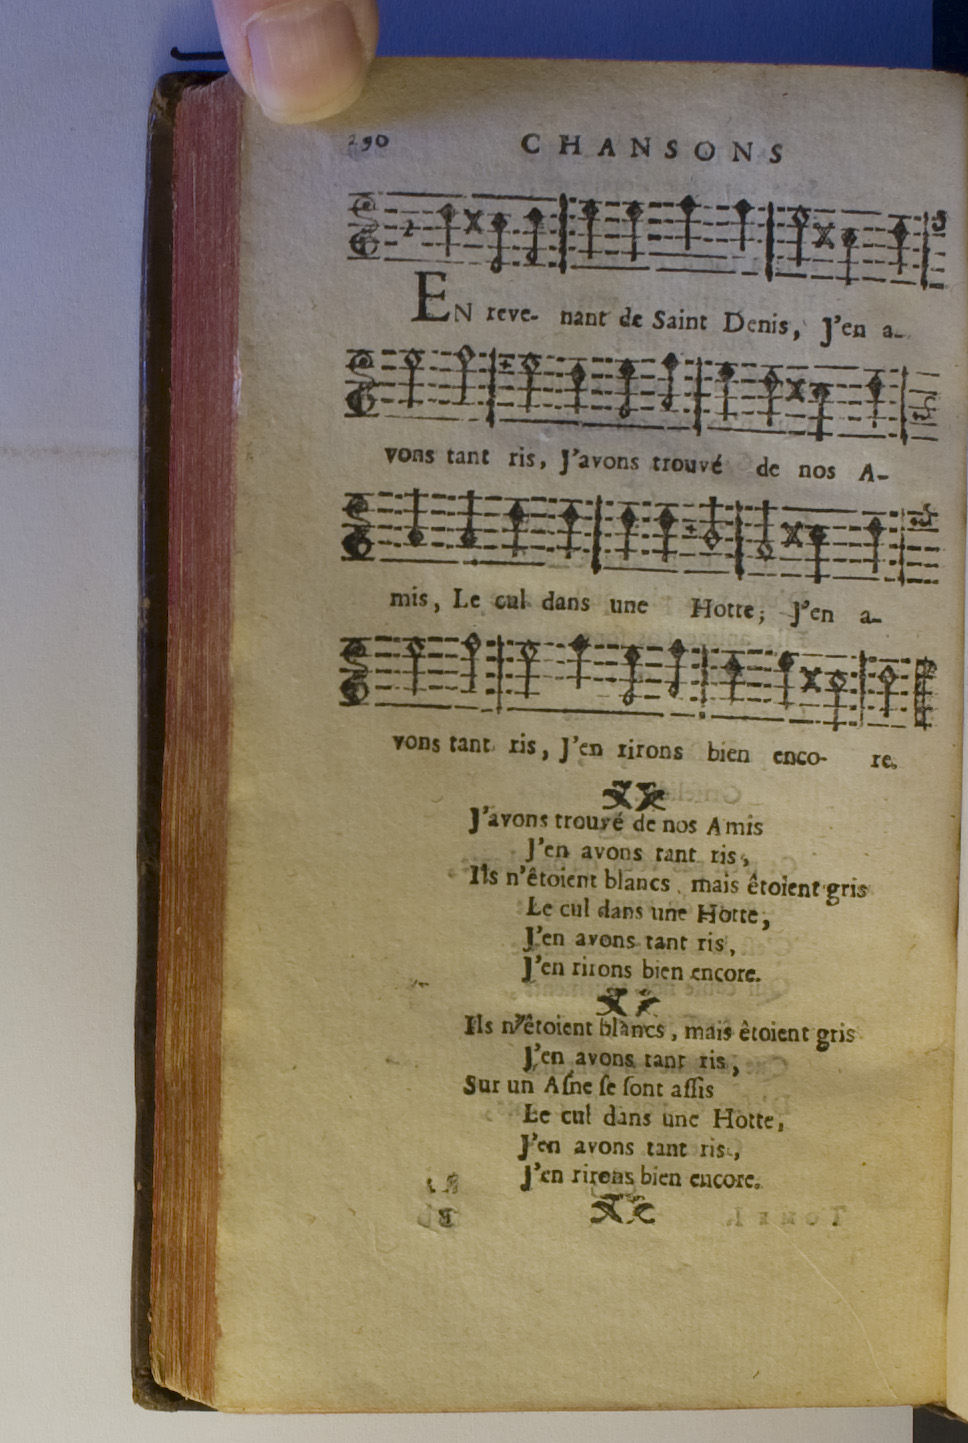 290 CHANSONS
EN reve- nant de Saint Denis, J'en a-
vons tant ris, J'avons trouvé de nos A-
mis, Le cul dans une Hotte, J'en a-
vons tant ris, J'en rirons bien enco- re.
J'avons trouvé de nos Amis
J'en avons tant ris,
Ils n'êtoient blancs mais êtoient gris
Le cul dans une Hotte,
J'en avons tant ris,
J'en rirons bien encore.
Ils n'êtoient blancs, mais êtoient gris
J'en avons tant ris,
Sur un Aſne ſe ſont aſſis
Le cul dans une Hotte,
J'en avons tant ris,
J'en rirons bien encore.